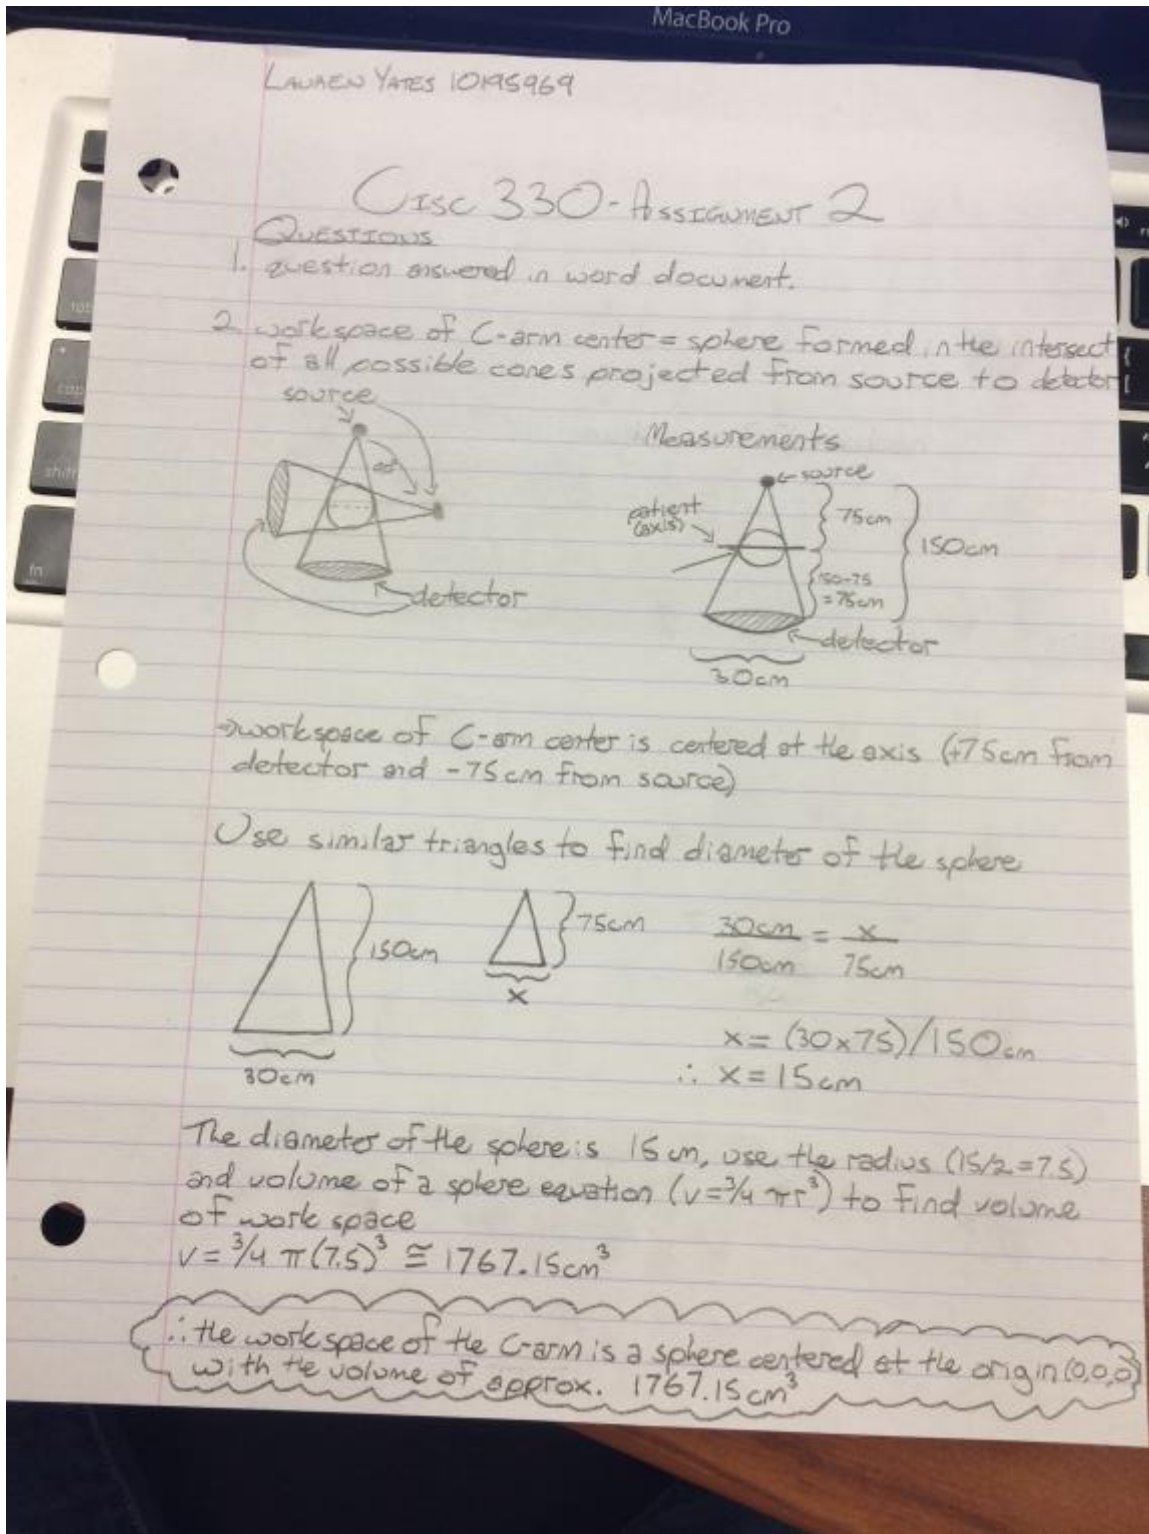 MacBook Pro
LAUREN YATES 10195969
CISC 330-ASSIGNMENT 2
QUESTIONS
1. question answered in word document.
2. workspace of C-arm center = sphere formed in the intersect
of all possible cones projected from source to detector
source
detector
Measurements
source
patient
(axis)
75cm
150cm
150-75
=75cm
detector
30cm
→workspace of C-arm center is centered at the axis (+75cm from
detector and -75cm from source)
Use similar triangles to find diameter of the sphere
150cm
30cm
75cm
x
30cm = x
150cm 75cm
x = (30x75)/150cm
∴ x = 15cm
The diameter of the sphere is 15cm, use the radius (15/2=7.5)
and volume of a sphere equation (v=3/4 πr³) to find volume
of work space
v = 3/4 π(7.5)³ ≅ 1767.15cm³
∴ the workspace of the C-arm is a sphere centered at the origin (0,0,0)
with the volume of approx. 1767.15cm³
fn
shift